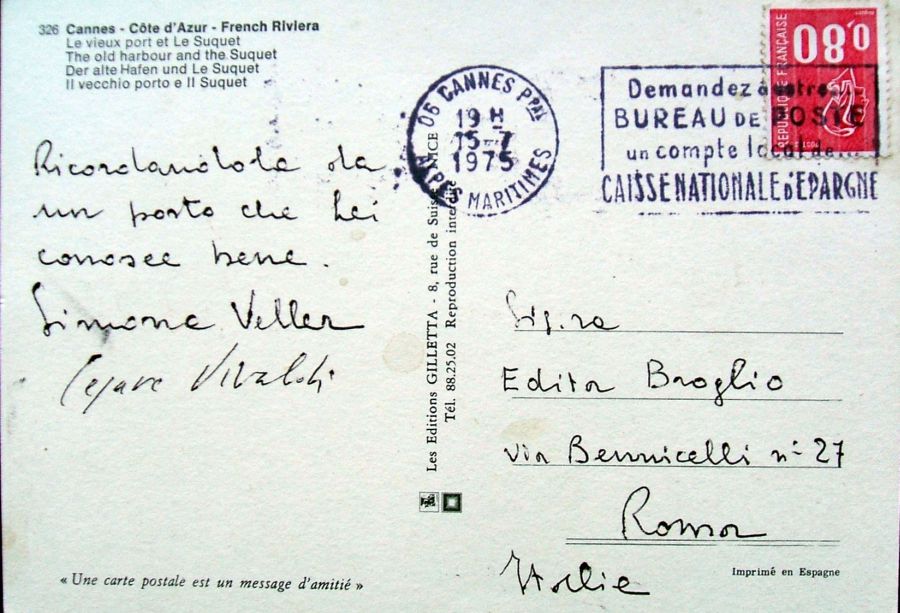 326 Cannes - Côte d'Azur - French Riviera
Le vieux port et Le Suquet
The old harbour and the Suquet
Der alte Hafen und Le Suquet
Il vecchio porto e Il Suquet
Ricordandola da
un posto che Lei
conosce bene.
Simona Weller
Cesare Vivaldi
« Une carte postale est un message d'amitié »
Les Editions GILLETTA - 8, rue de Suisse NICE
Tél. 88.25.02 Reproduction interdite
06 CANNES Ppal
19 H
15-7
1975
ALPES MARITIMES
Demandez à votre
BUREAU DE POSTE
un compte local de
CAISSE NATIONALE D'EPARGNE
0,80
REPUBLIQUE FRANÇAISE
POSTES
Sig.ra
Edita Broglio
via Bennicelli n° 27
Roma
Italie
Imprimé en Espagne